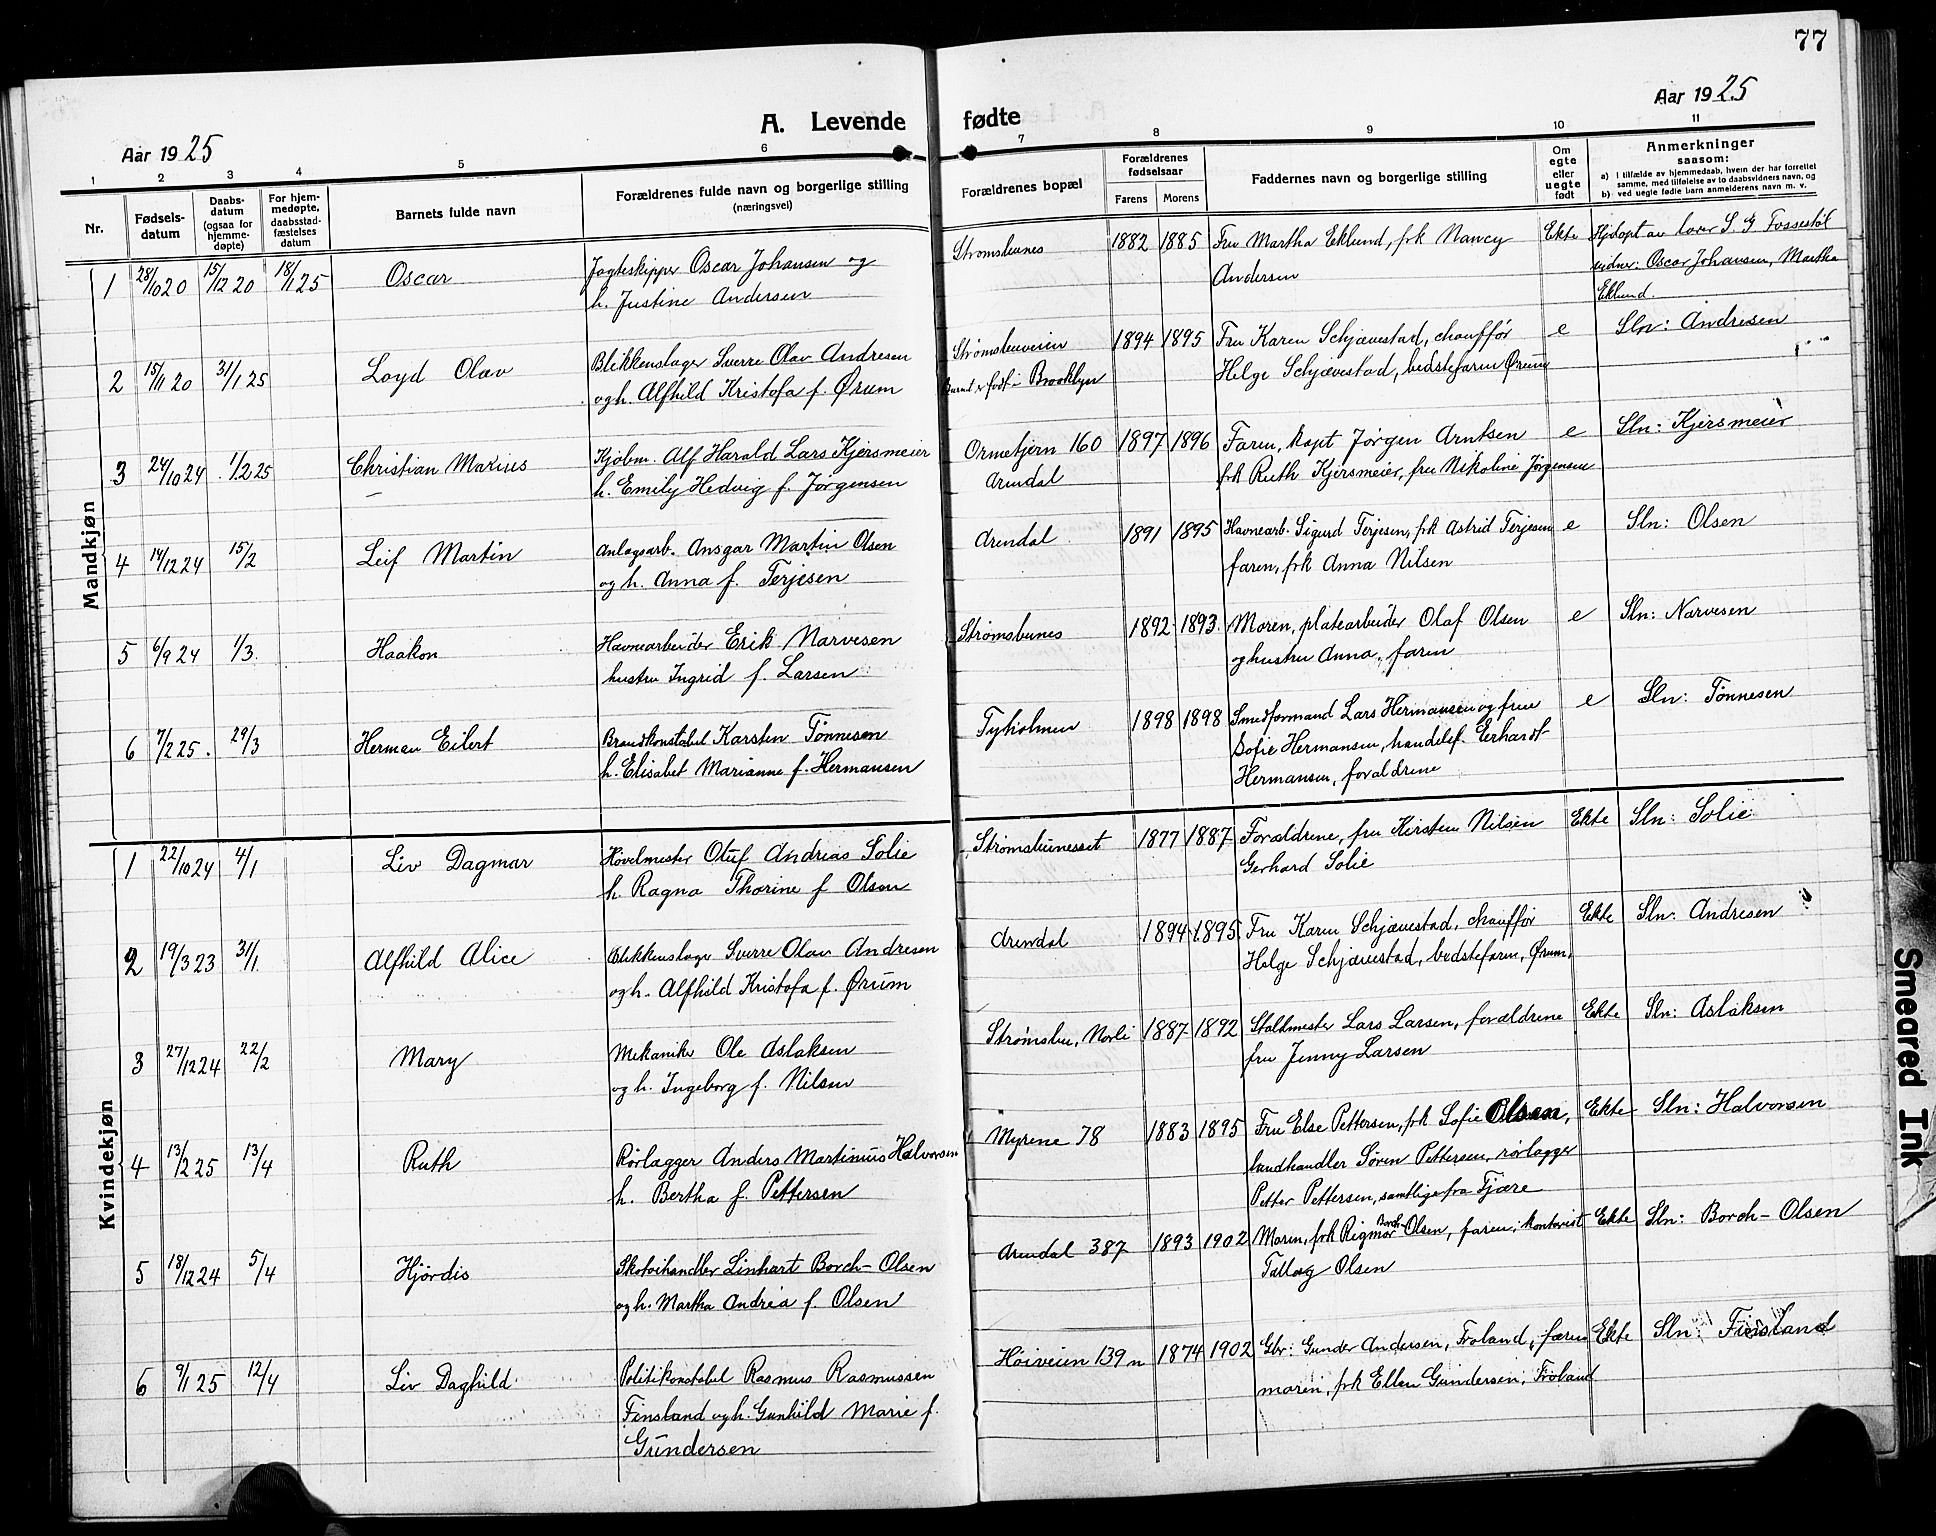 77
Aar 1925
A. Levende fødte
Aar 1925
1 2 3 4 5 6 7 8 9 10 11
Nr.
Fødsels-
datum
Daabs-
datum
(ogsaa for
hjemme-
døpte)
For hjem-
medøpte,
daabsstad-
fæstelses
datum
Barnets fulde navn
Forældrenes fulde navn og borgerlige stilling
(næringsvei)
Forældrenes bopæl
Forældrenes
fødselsaar
Farens Morens
Faddernes navn og borgerlige stilling
Om
egte
eller
uegte
født
Anmerkninger
saasom:
a) I tilfælde av hjemmedaab, hvem der har forrettet
samme, med tilføielse av to daabsvidners navn, og
b) ved uegte fødte barn anmelderens navn m. v.
Mandkjøn
1 28/10 20 15/12 20 18/1 25 Oscar
Jagteskipper Oscar Johansen og
h. Justine Andersen
Strømsbunes 1882 1885
Fru Martha Eklund, frk Nancy
Andersen
Ekte
Hjdøpt av lærer S G Fossestøl
vidner: Oscar Johansen, Martha
Eklund.
2 15/11 20 31/1 25 Loyd Olav
Blikkenslager Sverre Olav Andresen
og h. Alfhild Kristofa f. Ørum
Strømsbuveien
Barnet er født i Brooklyn
1894 1895
Fru Karen Schjævestad, chauffør
Helge Schjævestad, bedstefaren Ørum
e Sln: Andresen
3 24/10 24 1/2 25 Christian Marius
Kjøbm. Alf Harald Lars Kjersmeier
h. Emily Hedvig f. Jørgensen
Ormetjern 160
Arendal
1897 1896
Faren, kapt Jørgen Arntsen
frk Ruth Kjersmeier, fru Nikoline Jørgensen
e Sln: Kjersmeier
4 14/12 24 15/2 Leif Martin
Anlægsarb. Ansgar Martin Olsen
og h. Anna f. Terjesen
Arendal 1891 1895
Havnearb. Sigurd Terjesen, frk Astrid Terjesen
faren, frk Anna Nilsen
e Sln: Olsen
5 6/9 24 1/3 Haakon
Havnearbeider Erik Narvesen
hustru Ingrid f. Larsen
Strømsbunes 1892 1893
Moren, platearbeider Olaf Olsen
og hustru Anna, faren
e Sln: Narvesen
6 7/2 25. 29/3 Herman Eilert
Brandkonstabel Karsten Tønnesen
h. Elisabet Marianne f. Hermansen
Tyholmen 1898 1898
Smedformand Lars Hermansen og frue
Sofie Hermansen, handelsf. Gerhardt
Hermansen, forældrene
e Sln: Tønnesen
Kvindekjøn
1 22/10 24 4/1 Liv Dagmar
Høvelmester Oluf Andreas Solie
h. Ragna Thorine f Olsen
Strømsbunesset 1877 1887
Forældrene, fru Kirsten Nilsen
Gerhard Solie
Ekte Sln: Solie
2 19/3 23 31/1. Alfhild Alice
Blikkenslager Sverre Olav Andresen
og h. Alfhild Kristofa f. Ørum
Arendal 1894 1895
Fru Karen Schjævestad, chauffør
Helge Schjævestad, bedstefaren, Ørum.
Ekte Sln: Andresen
3 27/12 24 22/2 Mary
Mekaniker Ole Aslaksen
og h. Ingeborg f. Nilsen
Strømsbu, Norli 1887 1892
Staldmester Lars Larsen, forældrene
fru Jenny Larsen
Ekte Sln: Aslaksen
4 13/2 25 13/4 Ruth
Rørlægger Anders Martinius Halvorsen
h. Bertha f. Pettersen
Myrene 78 1883 1895
Fru Else Pettersen, frk Sofie Olsen,
landhandler Søren Pettersen, rørlægger
Petter Pettersen, samtlige fra Fjære
Ekte Sln: Halvorsen
5 18/12 24 5/4 Hjørdis
Skotøihandler Linhart Borch-Olsen
og h. Martha Andrea f. Olsen
Arendal 387 1893 1902
Moren, frk Rigmor Borch-Olsen, faren, kontorist
Tallag Olsen
Ekte Sln: Borch-Olsen
6 9/1 25 12/4 Liv Daghild
Politikonstabel Rasmus Rasmussen
Finsland og h. Gunhild Marie f.
Gundersen
Høiveien 139 n 1874 1902
Gbr: Gunder Andersen, Froland, faren
moren, frk Ellen Gundersen, Froland
Ekte Sln: Finsland
Smeared Ink